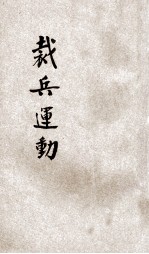 裁兵運動